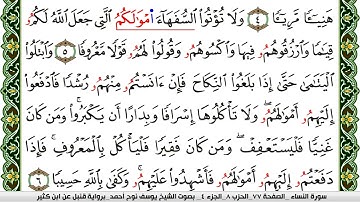 هَنِيٓـًٔا مَّرِيٓـًٔا ٤ وَلَا تُؤْتُوا۟ ٱلسُّفَهَآءَ امْوَٰلَكُمُ ٱلَّتِى جَعَلَ ٱللَّهُ لَكُمُۥ
قِيَٰمًا وَٱرْزُقُوهُمُۥ فِيهَا وَٱكْسُوهُمُۥ وَقُولُوا۟ لَهُمُۥ قَوْلًا مَّعْرُوفًا ٥ وَٱبْتَلُوا۟
ٱلْيَتَٰمَىٰ حَتَّىٰ إِذَا بَلَغُوا۟ ٱلنِّكَاحَ فَإِنْ ءَانَسْتُمُۥ مِنْهُمُۥ رُشْدًا فَٱدْفَعُوا۟
إِلَيْهِمُۥ أَمْوَٰلَهُمُۥ وَلَا تَأْكُلُوهَا إِسْرَافًا وَبِدَارًا أَن يَكْبَرُوا۟ وَمَن كَانَ
غَنِيًّا فَلْيَسْتَعْفِفْ وَمَن كَانَ فَقِيرًا فَلْيَأْكُلْ بِٱلْمَعْرُوفِ فَإِذَا
دَفَعْتُمُۥ إِلَيْهِمُۥ أَمْوَٰلَهُمُۥ فَأَشْهِدُوا۟ عَلَيْهِمُۥ وَكَفَىٰ بِٱللَّهِ حَسِيبًا ٦
سورة النساء _ الصفحة ٧٧ _ الحزب ٨ _ الجزء ٤ _ بصوت الشيخ يوسف نوح أحمد _ برواية قنبل عن ابن كثير